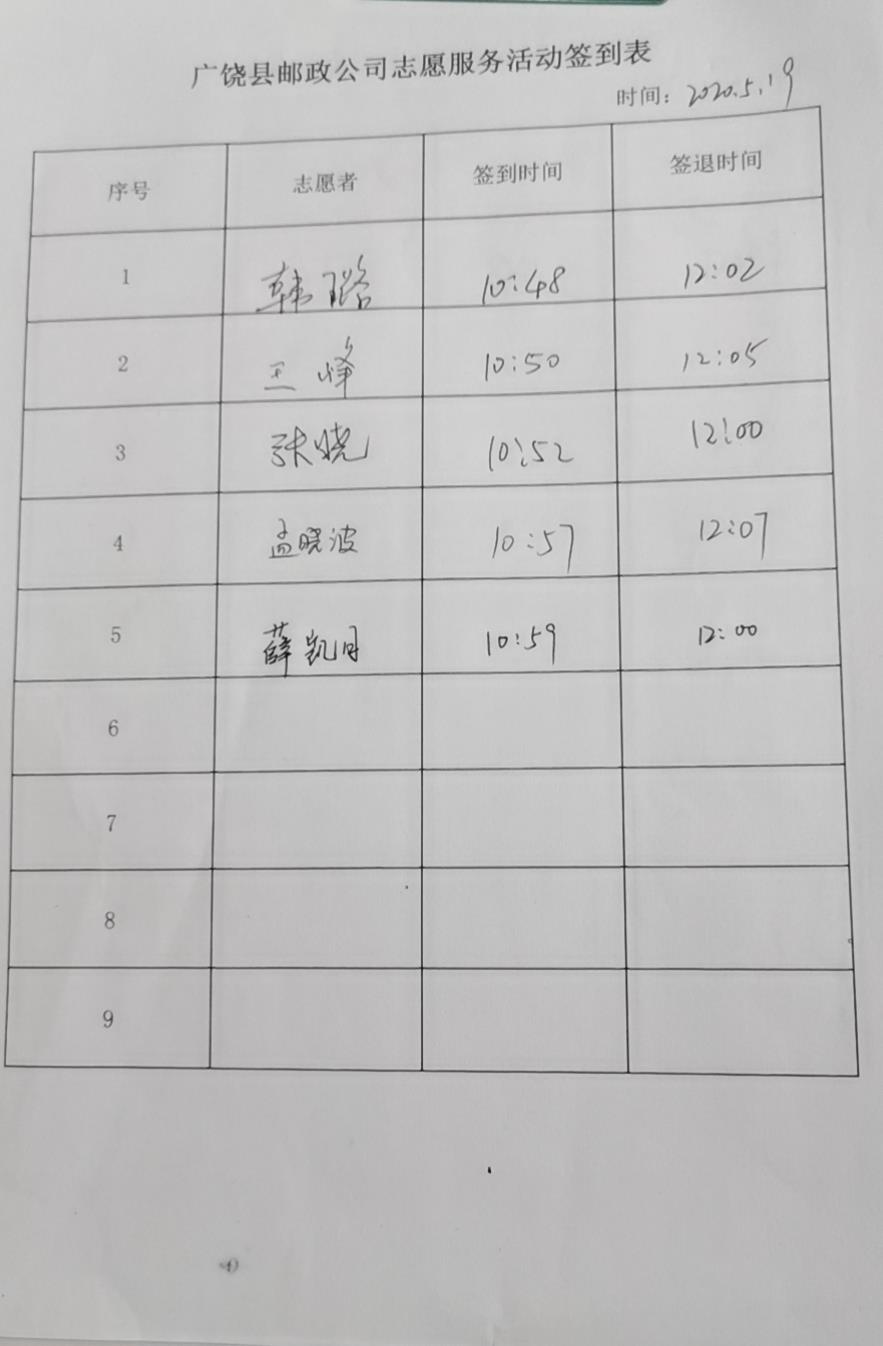 广饶县邮政公司志愿服务活动签到表
时间：2020.5.19
序号 志愿者 签到时间 签退时间
1 韩璐 10:48 12:02
2 王峰 10:50 12:05
3 张晓 10:52 12:00
4 孟晓波 10:57 12:07
5 薛凯月 10:59 12:00
6
7
8
9